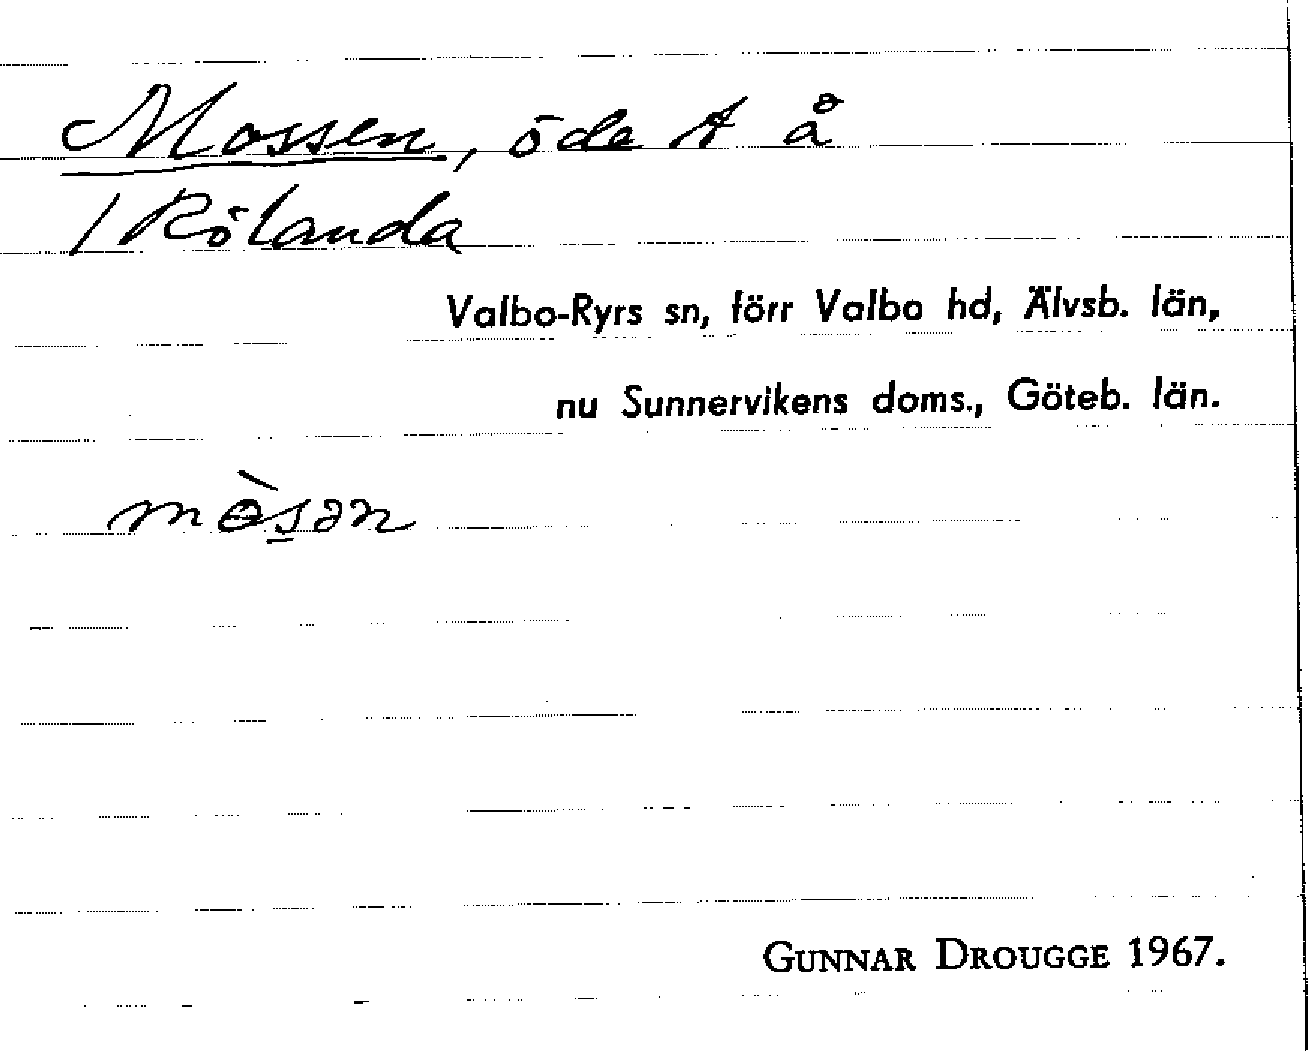 Mossen, öde t å
/ Rölanda
Valbo-Ryrs sn, förr Valbo hd, Älvsb. län,
nu Sunnervikens doms., Göteb. län.
mɵ̀s̲ən
GUNNAR DROUGGE 1967.